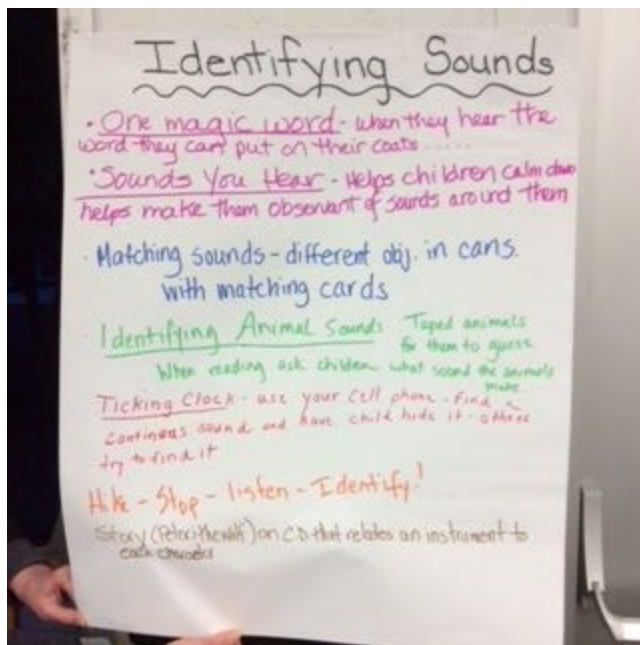 Identifying Sounds
• One magic word - when they hear the
word they can put on their coats .....
• Sounds You Hear - Helps children calm down
helps make them observant of sounds around them
• Matching sounds - different obj. in cans.
with matching cards
• Identifying Animal Sounds Taped animals
for them to guess
When reading ask children what sound the animals
make
Ticking Clock - use your cell phone - find a
continous sound and have child hide it - others
try to find it
Hike - Stop - listen - Identify!
Story (Peter &the wolf) on CD that relates an instrument to
each